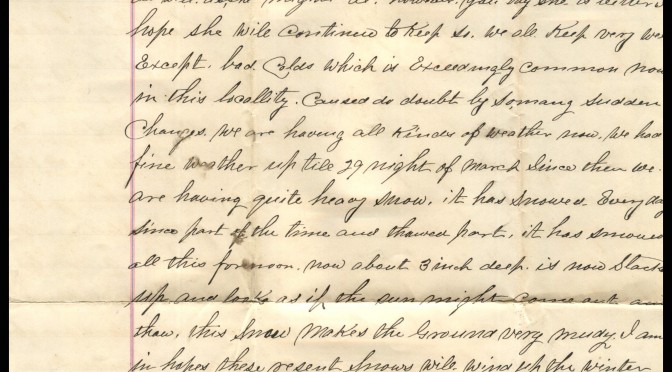 hope she will continue to keep so. we all Keep very we
Except. bad Colds which is Exceedingly common now
in this locallity. Caused do doubt by so many sudden
Changes. we are having all Kinds of weather now. we had
fine weather up till 29 night of March Since then we
are having quite heavy snow. it has snowed Everyday
since part of the time and thawed part. it has snowed
all this forenoon. now about 3 inch deep. is now Slack
up and looks as if the sun might come out and
thaw. this Snow makes the Ground very mudy. I am
in hopes these resent snows will wind up the winter